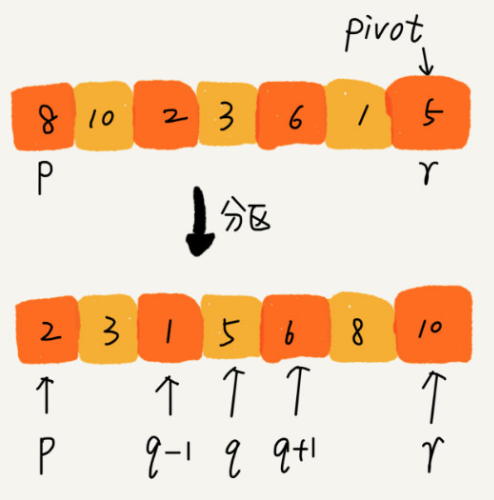 pivot
8 10 2 3 6 1 5
p r
分区
2 3 1 5 6 8 10
p q-1 q q+1 r